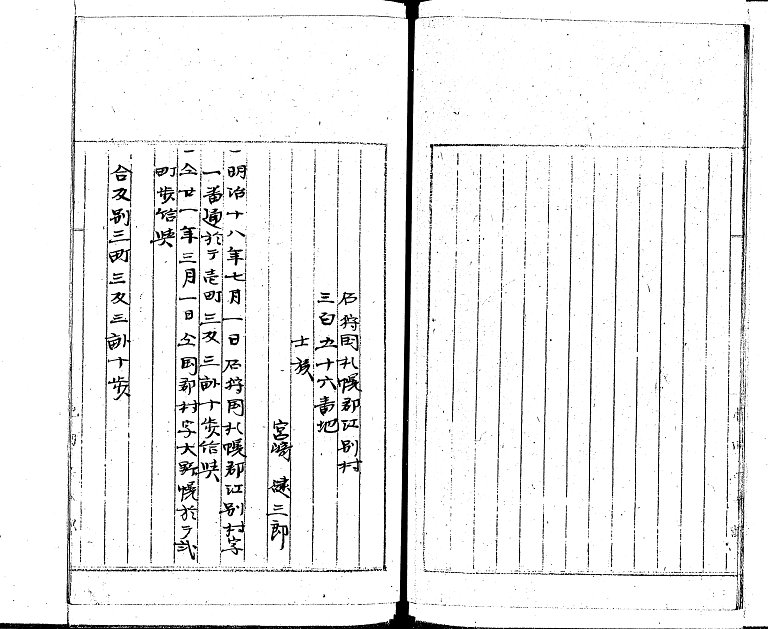 石狩国札幌郡江別村
三百五十六番地
士族
宮崎 建三郎
一明治十八年七月一日石狩国札幌郡江別村字
一番通於テ壱町三反三畝十歩給与
一仝廿一年三月一日仝国郡村字大野幌於テ弐
町歩給与
合反別三町三反三畝十歩